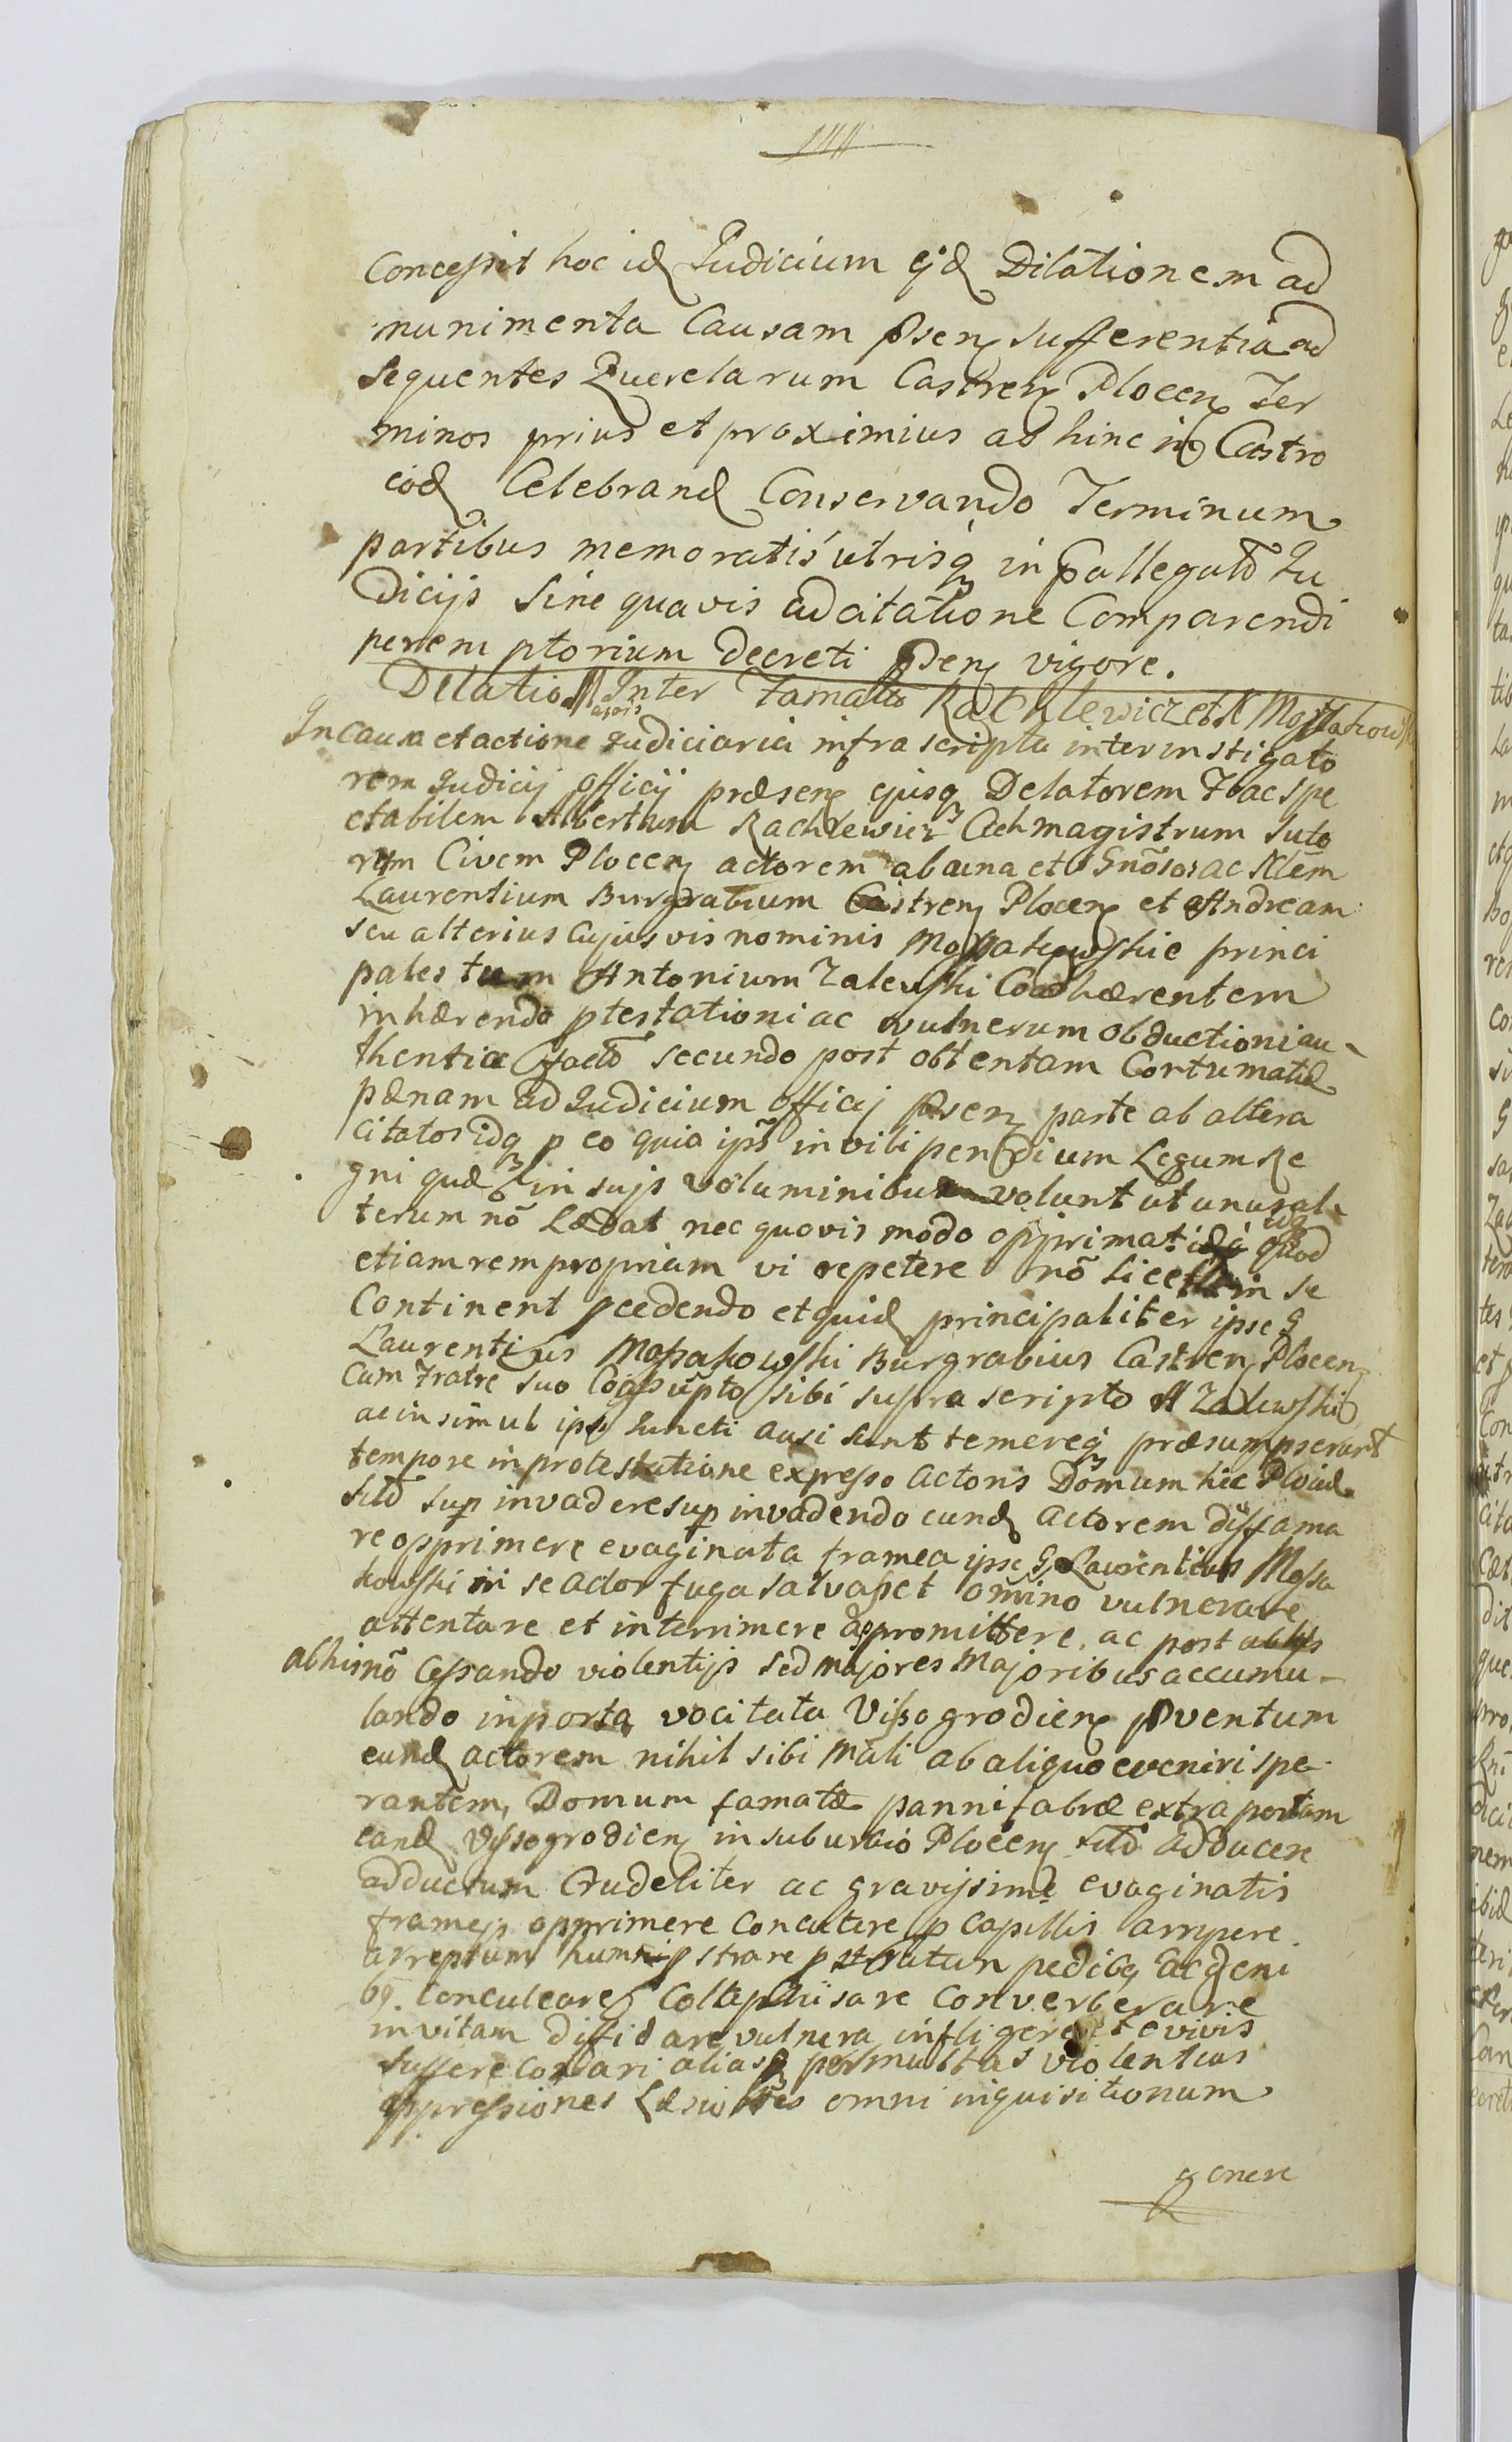 Concessit hoc id Judicium ejd Dilationem ad
munimenta Causam psen sufferentia ad
sequentes Querelarum Castren Plocen Ter
minos prius et proximius ab hinc in Castro
eod Celebrand Conservando Terminum
partibus memoratis utrisq in pallegato Ju
dicijs Sine quavis adcitatione Comparendi
peremptorium decreti psen vigore.
Delatio Inter Famatu Rachlewicz et N Mossakow
In Causa et actione Judiciaria infrascripta inter instigato
rem Judicij officij præsen ejusq Delatorem Fac spe
ctabilem Albertum Rachlewicz Achmagistrum Suto
rum Civem Plocen actorem ab una et Gnosos ac Nlem
Laurentium Burgrabium Castren Plocen et Andream
seu alterius Cujusvis nominis Mossakowskie princi
pales tum Antonium Zalewski Coadhærentem
inhærendo ptestationi ac vulnerum obductioni au-
thentice facto secundo post obtentam Contumatiæ
pænam ad Judicium officij psen parte ab altera
Citatos idq p eo quia ips in vilipendium Legum Re
gni quæ in suis voluminibus volunt ut unus al-
terum nō Lædat nec quovis modo opprimat quod
etiam rem propriam vi repetere nō licet in se
Continent pcedendo et quid principaliter ipse G
Laurentius Mossakowski Burgrabius Castren Plocen
Cum Fratre suo Coassūpto sibi supra scripto A Zalewski
ac insimul ipsi Juncti ausi sunt temereq præsumpserunt
tempore in protestatione expresso actoris Domum hic
sito sup invadere sup invadendo eund actorem diffama
re opprimere evaginata framea ipse G Laurentius Mossa
kowski ni se actor fuga salvasset omino vulnerare
attentare et interrimere appromittere ac post
ab his nō Cessando violentijs sed majores majoribus accumu-
lando in porta vocitata Vissogrodien pventum
eund actorem nihil sibi mali ab aliquo eveniri spe
rantem, Domum famatæ pannifabræ extra portam
eand Vyssogrodien in suburbio Plocen sito adducere
adductum Crudeliter ac gravissime evaginatis
frameis opprimere Concutere p Capillis arripere
arreptum humi pstrare pstratum pedibq ac geni
bq. Conculcare Collaphisare Converberare
in vitam diffidare vulnera infligere et e vivis
suffere Conari aliasq permultas violentias
oppressiones Læsiones omni inquisitionum
genere